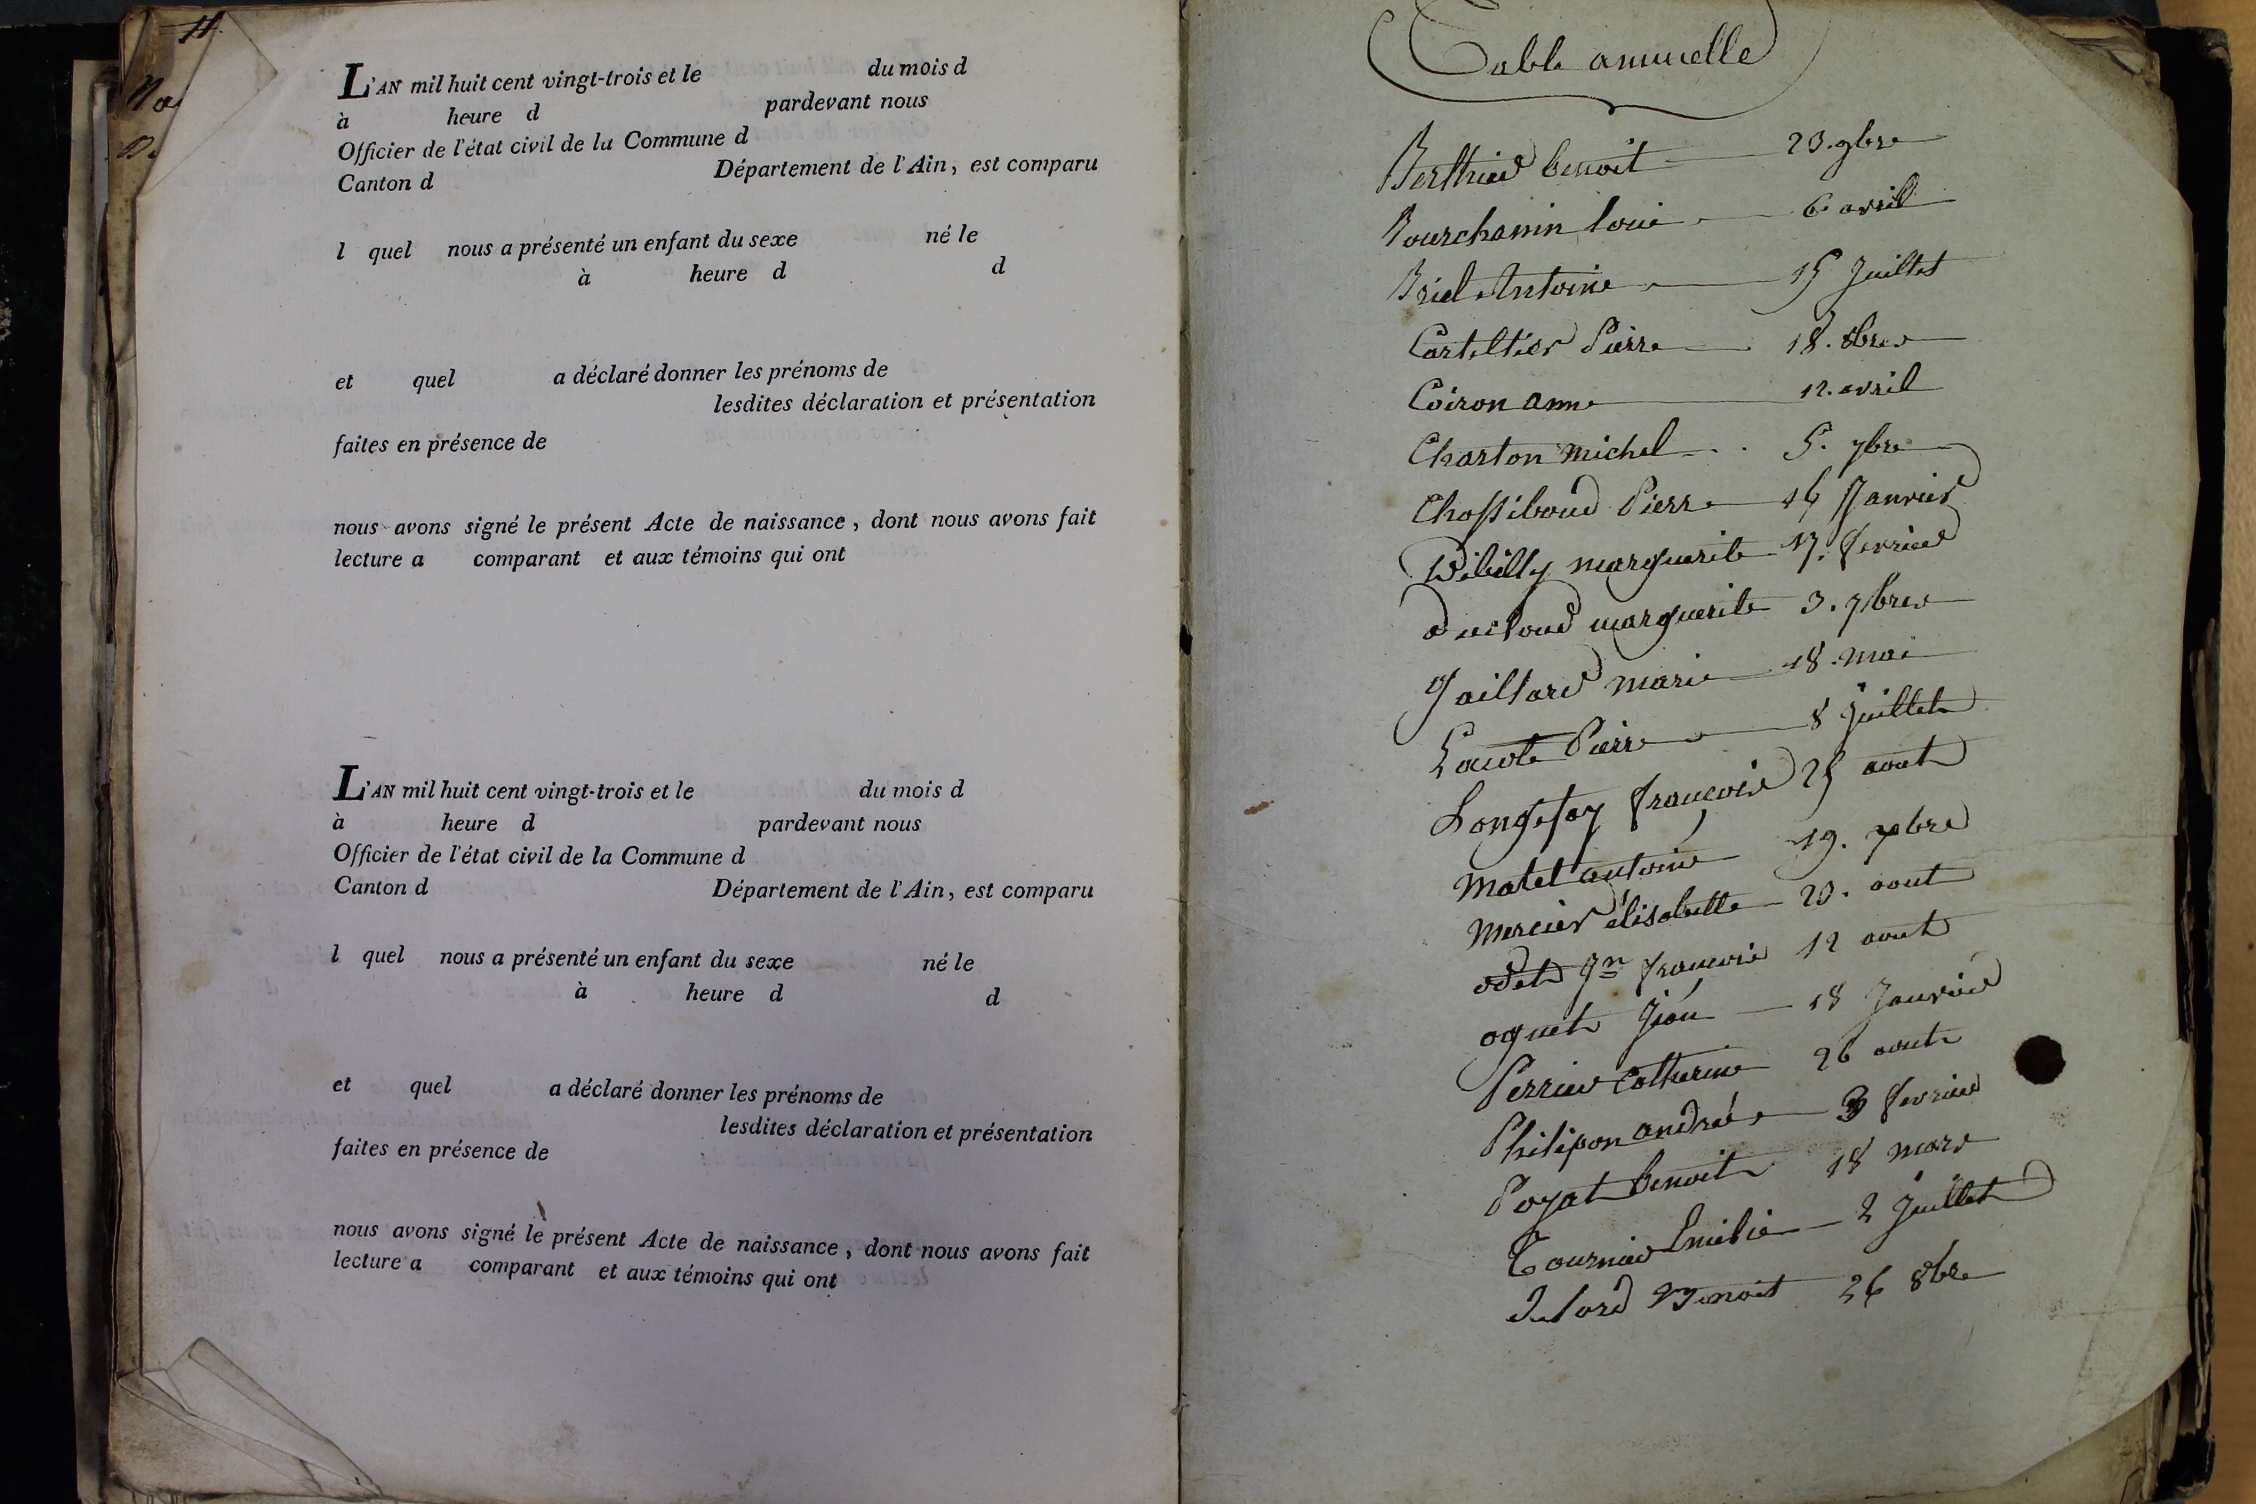 11.
L'AN mil huit cent vingt-trois et le du mois d
à heure d pardevant nous
Officier de l'état civil de la Commune d
Canton d Département de l'Ain, est comparu
l quel nous a présenté un enfant du sexe né le
à heure d d
et quel a déclaré donner les prénoms de
lesdites déclaration et présentation
faites en présence de
nous avons signé le présent Acte de naissance, dont nous avons fait
lecture a comparant et aux témoins qui ont
L'AN mil huit cent vingt-trois et le du mois d
à heure d pardevant nous
Officier de l'état civil de la Commune d
Canton d Département de l'Ain, est comparu
l quel nous a présenté un enfant du sexe né le
à heure d d
et quel a déclaré donner les prénoms de
lesdites déclaration et présentation
faites en présence de
nous avons signé le présent Acte de naissance, dont nous avons fait
lecture a comparant et aux témoins qui ont
Table annuelle
Berthier benoit 23. 9bre
Bourchanin loui 6 avril
Briel Antoine 15 Juillet
Carteltier Pierre 18. 8bre
Coiron anne 12. avril
Charton michel 5. 7bre
Chossiboud Pierre 16 Janvier
Débilly marguerite 17. fevrier
ducloud marguerite 3. 7bre
Gaillard marie 18. mai
Lacote Pierre 8 Juillet
Longefay françois 25 aout
Matel antoine 19. xbre
mercier élisabette 23. aout
odet Jn françois 12 aout
oguet Jean 18 Janvier
Perrier Catherine 26 aout
Philipon andré 3 fevrier
Poyat benoit 18 mars
Tournier Emilie 2 Juillet
Benoit 26 8bre